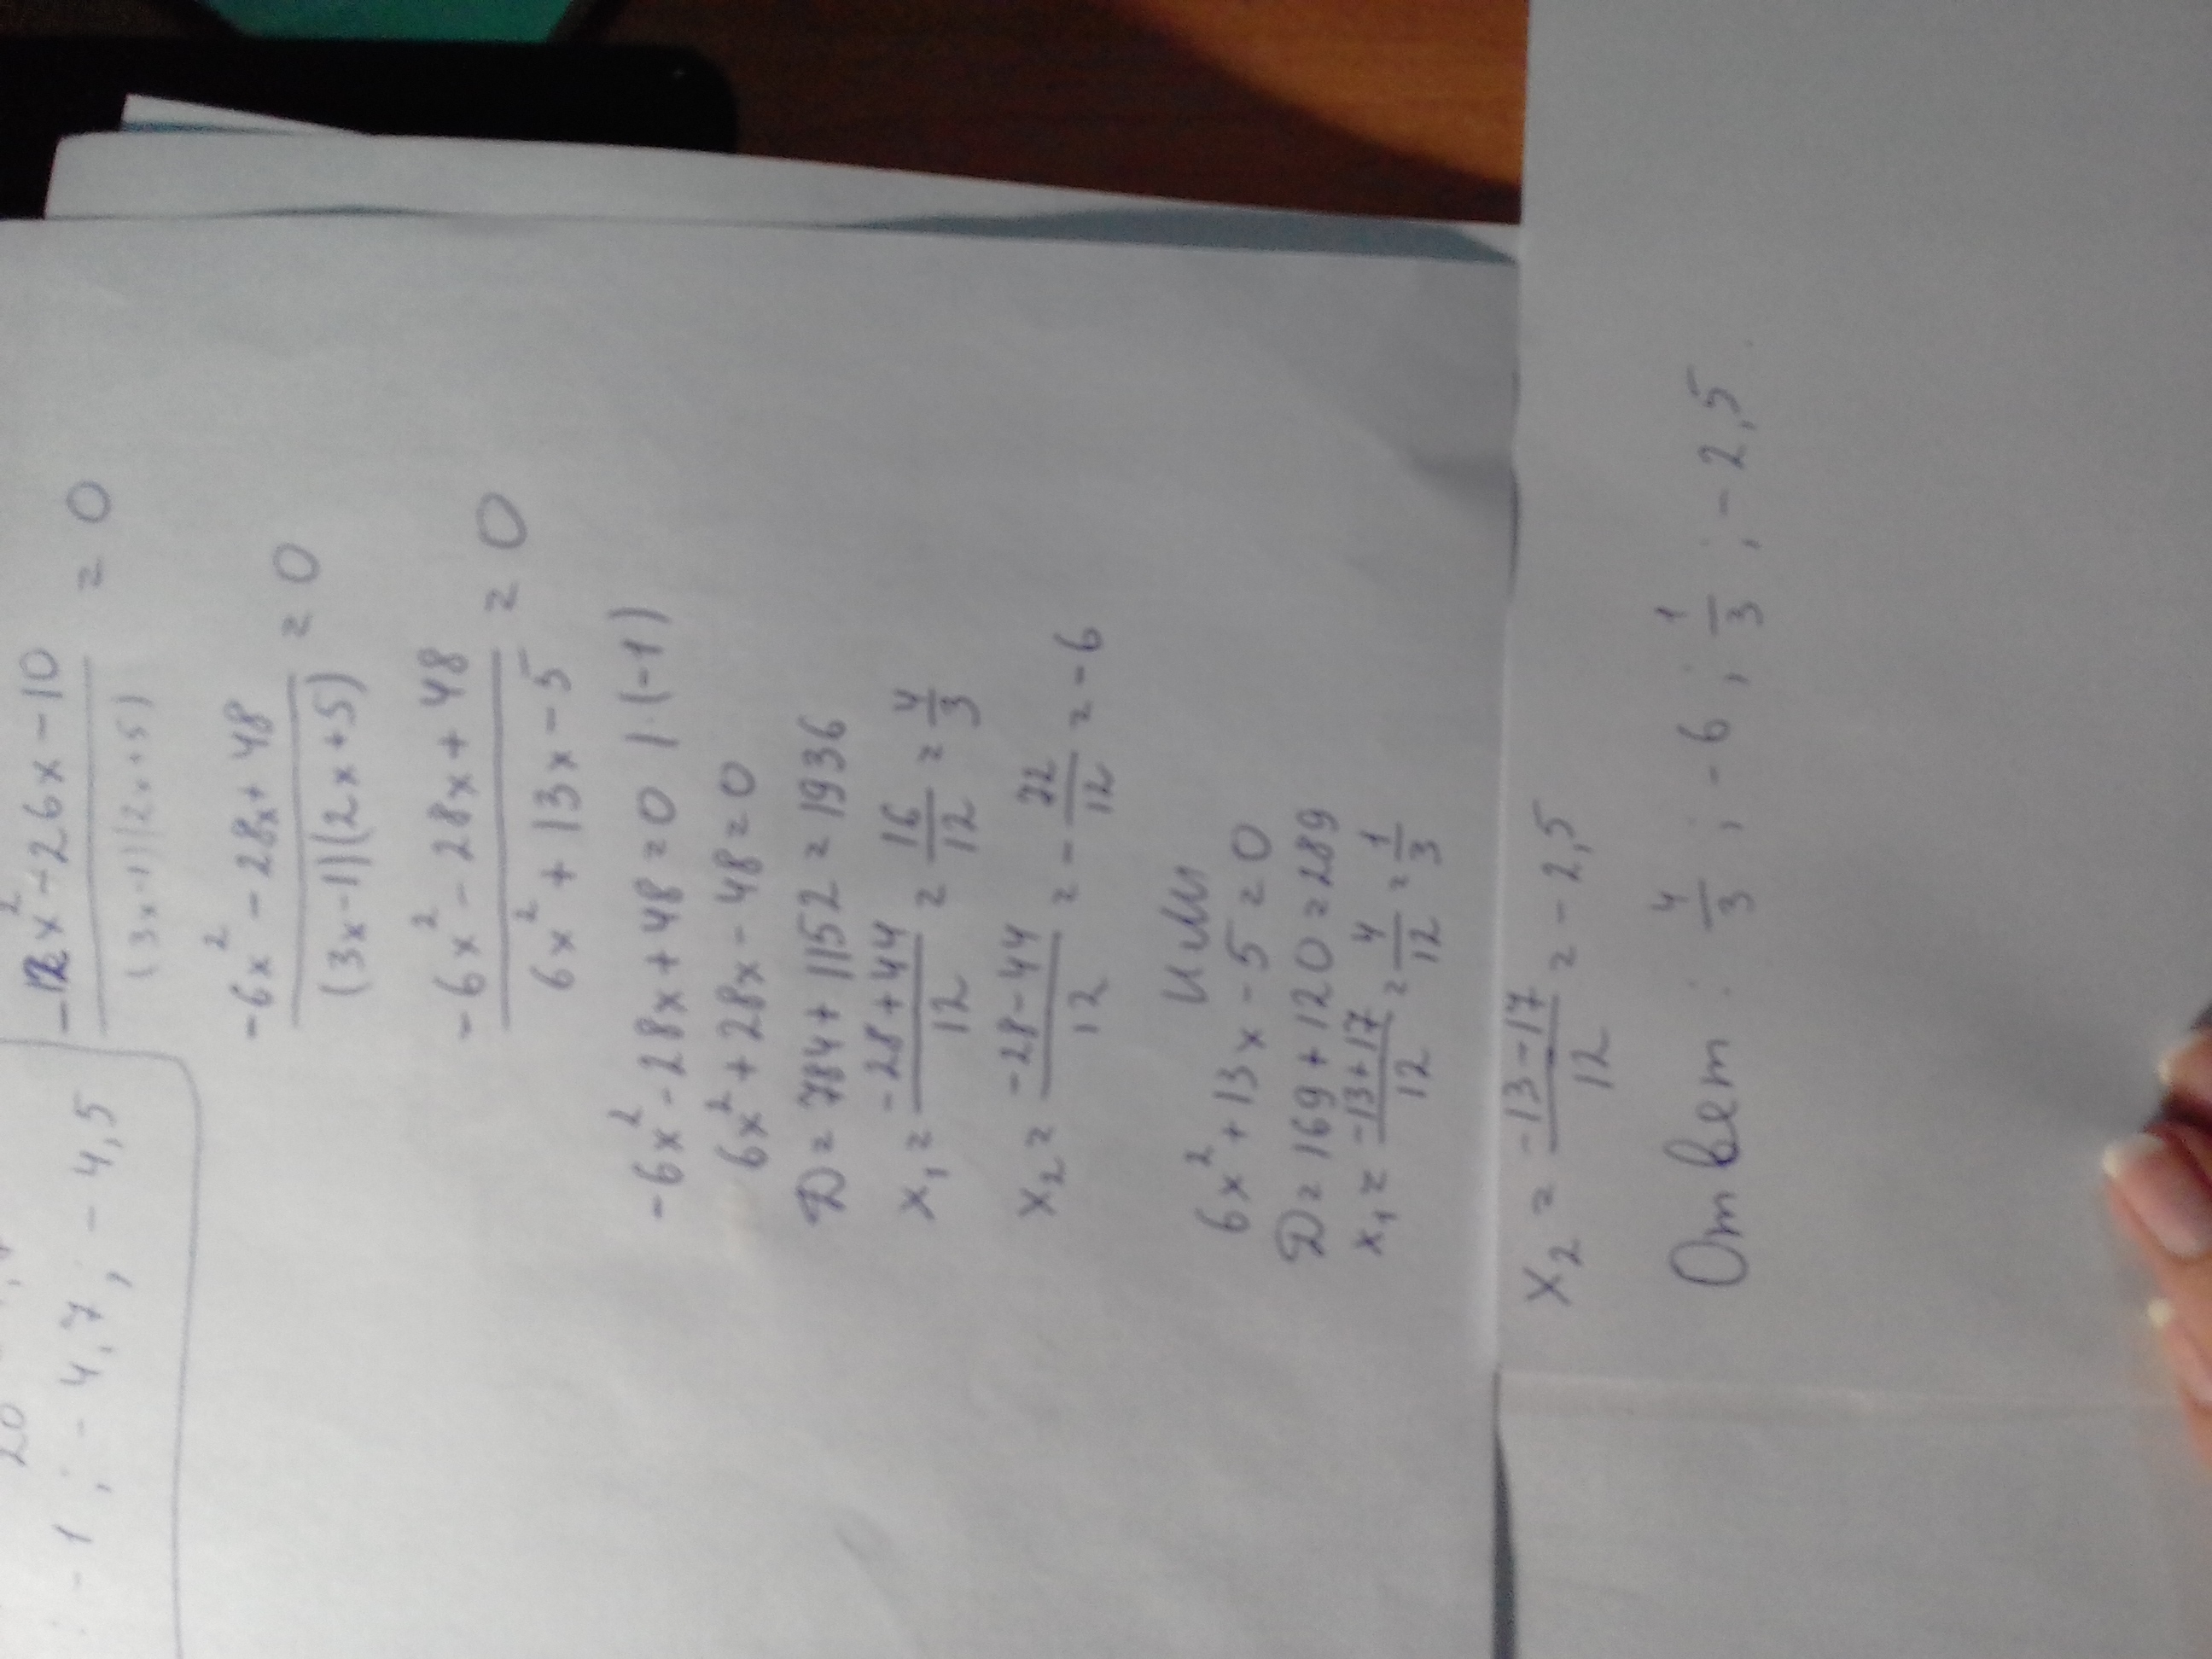 20
-1 ; -4,7 ; -4,5
-12x² - 26x - 10 / (3x-1)(2x+5) = 0
-6x² - 28x + 48 / (3x-1)(2x+5) = 0
-6x² - 28x + 48 / 6x² + 13x - 5 = 0
-6x² - 28x + 48 = 0 | · (-1)
6x² + 28x - 48 = 0
D = 784 + 1152 = 1936
x₁ = -28+44 / 12 = 16/12 = 4/3
x₂ = -28-44 / 12 = - 72/12 = -6
или
6x² + 13x - 5 = 0
D = 169 + 120 = 289
x₁ = -13+17 / 12 = 4/12 = 1/3
x₂ = -13-17 / 12 = -2,5
Ответ: 4/3 ; -6 ; 1/3 ; -2,5.